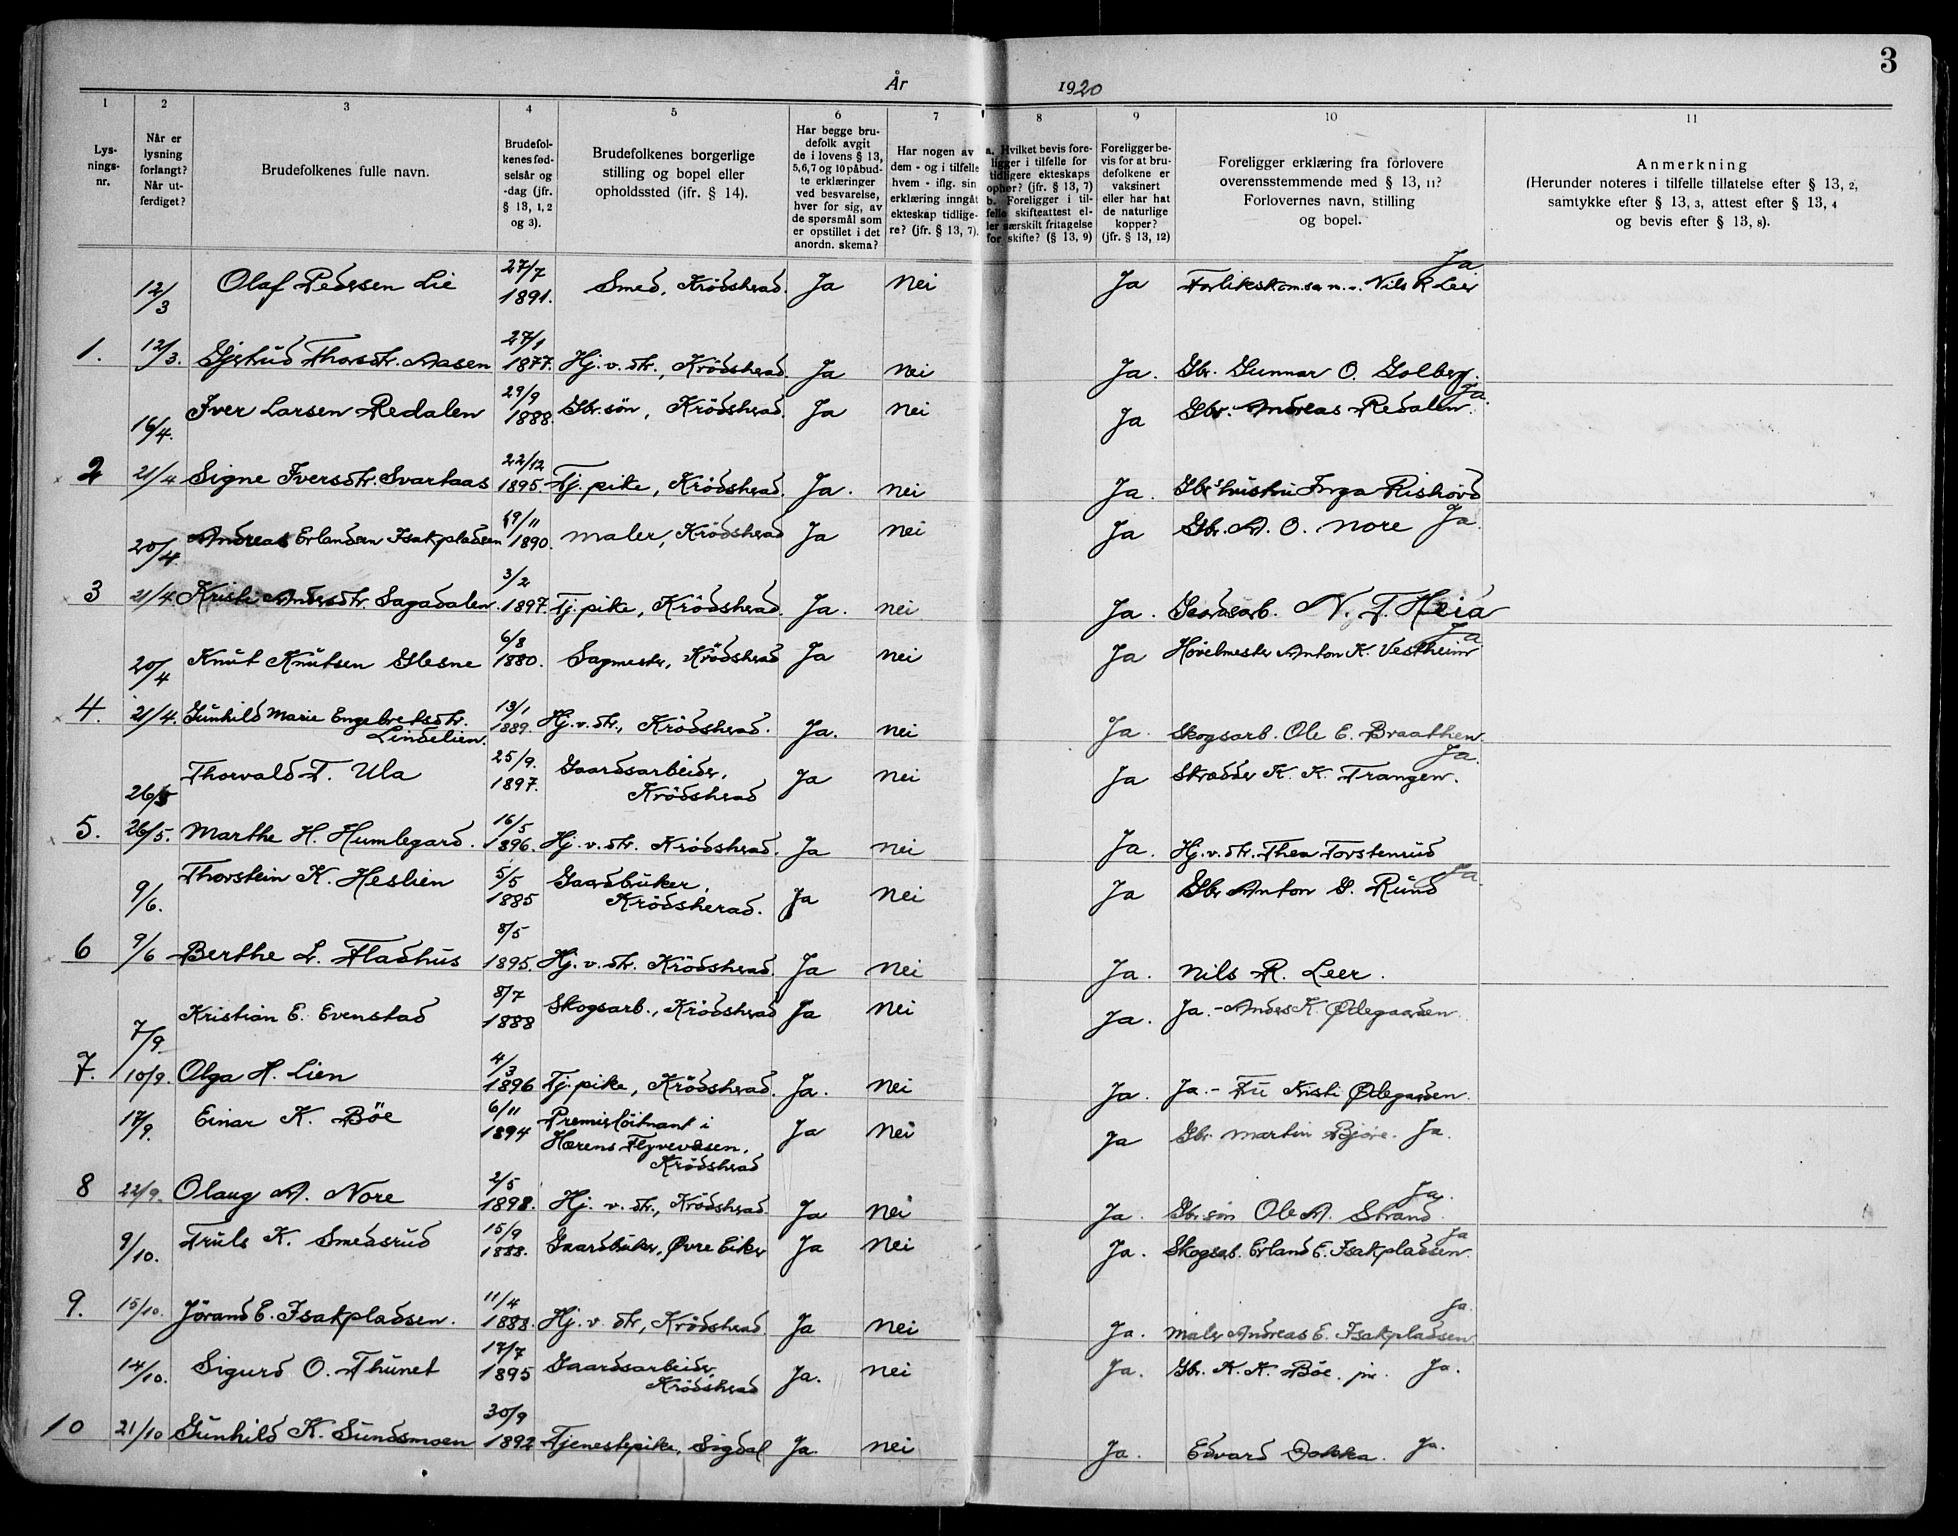 År 1920
3
1 2 3 4 5 6 7 8 9 10 11
Lysningsnr.
Når er lysning forlangt? Når utferdiget?
Brudefolkenes fulle navn.
Brudefolkenes fødselsår og -dag (jfr. § 13, 1, 2 og 3).
Brudefolkenes borgerlige stilling og bopel eller opholdssted (jfr. § 14).
Har begge brudefolk avgit de i lovens § 13, 5, 6, 7 og 10 påbudte erklæringer ved besvarelse, hver for sig, av de spørsmål som er opstillet i det anordn. skema?
Har nogen av dem - og i tilfelle hvem - iflg. sin erklæring inngåt ekteskap tidligere? (jfr. § 13, 7).
a. Hvilket bevis foreligger i tilfelle for tidligere ekteskaps ophør? (jfr. § 13, 7) b. Foreligger i tilfelle skifteattest eller særskilt fritagelse for skifte? (§ 13, 9)
Foreligger bevis for at brudefolkene er vaksinert eller har hat de naturlige kopper? (jfr. § 13, 12)
Foreligger erklæring fra forlovere overensstemmende med § 13, 11? Forlovernes navn, stilling og bopel.
Anmerkning (Herunder noteres i tilfelle tillatelse efter § 13, 2, samtykke efter § 13, 3, attest efter § 13, 4 og bevis efter § 13, 8).
12/3 Olaf Pedersen Lie 27/7 1891. Smed, Krödsherad. Ja Nei Ja Forlikskom. Nils R Leer Ja
1. 12/3. Gjertrud Thorsdtr. Aasen 27/1 1877. Hj. v. dtr., Krödsherad. Ja Nei Ja. Gbr. Gunnar O. Golberg. Ja.
16/4. Iver Larsen Redalen 29/9 1888. Gbr.sön, Krödsherad. Ja Nei Ja Gbr. Andreas Redalen.
2 21/4 Signe Iversdtr. Svartaas 22/12 1895. Tj. pike, Krödsherad. Ja. Nei Ja. Gbr. hustru Inga Rishovd
20/4. Andreas Erlandsen Isakpladsen 19/11 1890. Maler, Krödsherad Ja Nei Ja Gbr. A. O. Nore Ja.
3 21/4 Kristi Andersdtr Sagadalen. 3/2 1897. Tj. pike, Krödsherad. Ja. Nei Ja. Gaardsarb. N. T. Heia
20/4 Knut Knutsen Glesne 6/8 1880. Sagmester, Krödsherad Ja Nei Ja Hövelmester Anton K. Vestheim Ja
4. 21/4. Gunhild Marie Engebretsdtr. Lindelien. 13/1 1889. Hj. v. dtr., Krödsherad. Ja. Nei Ja. Skogsarb. Ole E. Braathen.
26/5 Thorvald T. Ula 25/9. 1897. Gaardsarbeider, Krödsherad Ja Nei Ja Skrædder K. K. Trangen. Ja.
5. 26/5. Marthe H. Humlegard. 16/5 1896. Hj. v. dtr. Krödsherad. Ja Nei Ja. Hj. v. dtr. Thea Torstensrud
9/6. Thorstein K. Heslien 5/5 1885 Gaardbruker, Krödsherad. Ja Nei Ja Gbr Anton G. Rund Ja.
6 9/6 Berthe L. Fladhus 8/5 1895. Hj. v. dtr. Krödsherad. Ja Nei Ja. Nils R. Leer.
7/9 Kristian E. Evenstad 8/7 1888 Skogsarb., Krödsherad Ja Nei Ja. Ja. - Anders K. Ødegaarden.
7. 10/9. Olga H. Lien 4/3 1896 Tj. pike, Krödsherad. Ja. Nei Ja. Ja. - Fru Kristi Ødegaarden.
17/9. Einar K. Böe 6/11 1894 Premierlöitnant i Hærens Flyvevæsen, Krödsherad Ja Nei Ja Gbr. Martin Björe. Ja.
8 22/9. Olaug A. Nore 2/5 1898. Hj. v. dtr., Krödsherad Ja Nei Ja. Gbr.sön Ole A. Strand. Ja.
9/10. Truls K. Smedsrud 15/9 1888. Gaardbruker, Øvre Eiker Ja Nei Ja. Skogsarb. Erland E. Isakpladsen. Ja
9. 15/10. Jörand E. Isakpladsen. 11/4 1888. Hj. v. dtr, Krödsherad. Ja Nei Ja. Maler Andreas E. Isakpladsen Ja.
14/10. Sigurd O. Thunet 17/7 1895 Gaardsarbeider, Krödsherad Ja. Nei Ja. Gbr. K. K. Böe. jr. Ja.
10 21/10 Gunhild K. Sundsmoen 30/9 1892 Tjenestepike, Sigdal Ja. Nei Ja. Edvard Dokka. Ja.